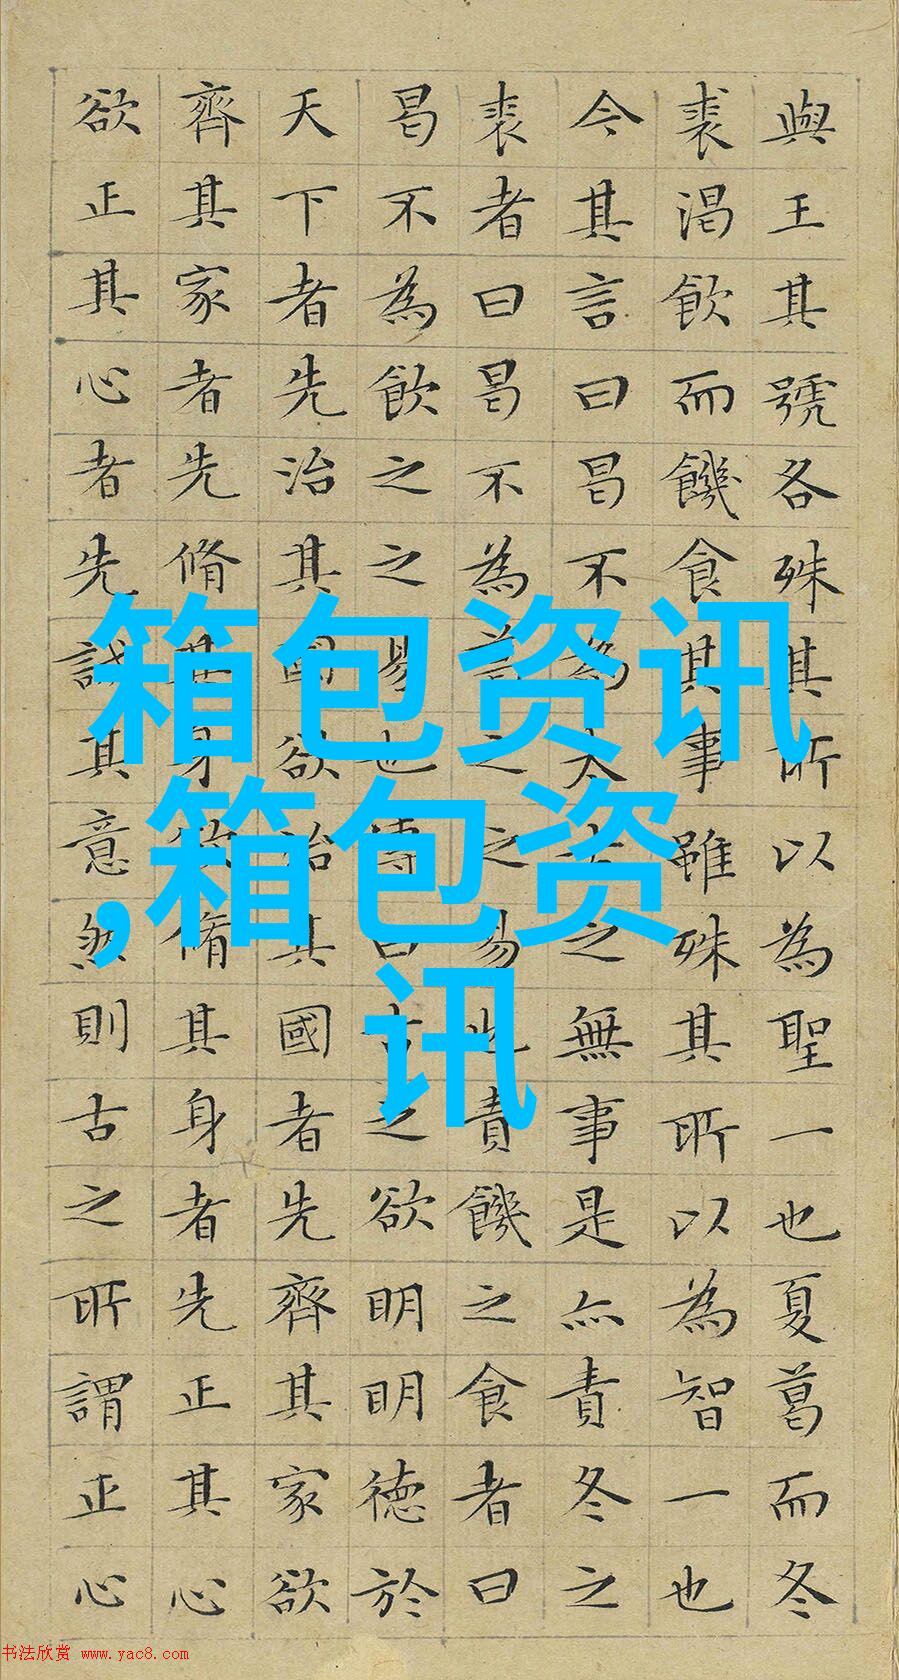 與王其號各殊其所以為聖一也夏葛而冬
裘渴飲而饑食其事雖殊其所以為智一也
今其言曰曷不為太古之無事是亦責冬之
裘者曰曷不為葛之之易也責饑之食者曰
曷不為飲之之易也傳曰古之欲明明德於
天下者先治其國欲治其國者先齊其家欲
齊其家者先脩其身欲脩其身者先正其心
欲正其心者先誠其意然則古之所謂正心
箱包资讯
,箱包资
讯
书法欣赏 www.yac8.com